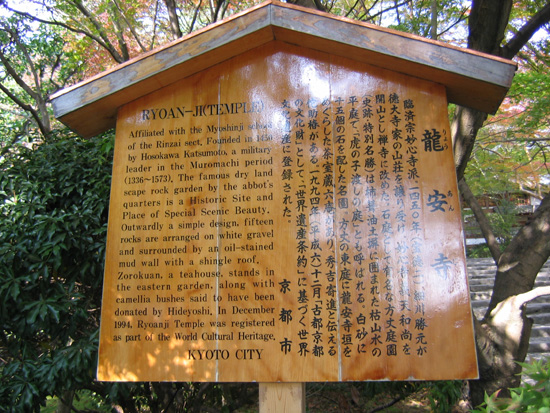 RYOAN-JI(TEMPLE)
Affiliated with the Myoshinji school
of the Rinzai sect, Founded in 1450
by Hosokawa Katsumoto, a military
leader in the Muromachi period
(1336~1573), The famous dry land
scape rock garden by the abbot's
quarters is a Historic Site and
Place of Special Scenic Beauty.
Outwardly a simple design, fifteen
rocks are arranged on white gravel
and surrounded by an oil-stained
mud wall with a shingle roof.
Zorokuan, a teahouse, stands in
the eastern garden, along with
camellia bushes said to have been
donated by Hideyoshi, In December
1994, Ryoanji Temple was registered
as part of the World Cultural Heritage,
KYOTO CITY
龍安寺
りょうあんじ
臨済宗妙心寺派。一四五〇年
細川勝元が
徳大寺家の山荘を譲り受け
和尚を
開山とし禅寺に改めた。石庭として有名な方丈庭園
史跡・特別名勝
は油土塀に囲まれた枯山水の
平庭で、虎の子渡しの庭とも呼ばれる。白砂に
十五個の石を配した名園。方丈の東庭に龍安寺垣を
めぐらした茶室蔵六庵
があり、秀吉寄進と伝える
侘助椿がある。一九九四年(平成六)十二月「古都京都
の文化財」として「世界遺産条約」に基づく世界
文化遺産に登録された。
京都市